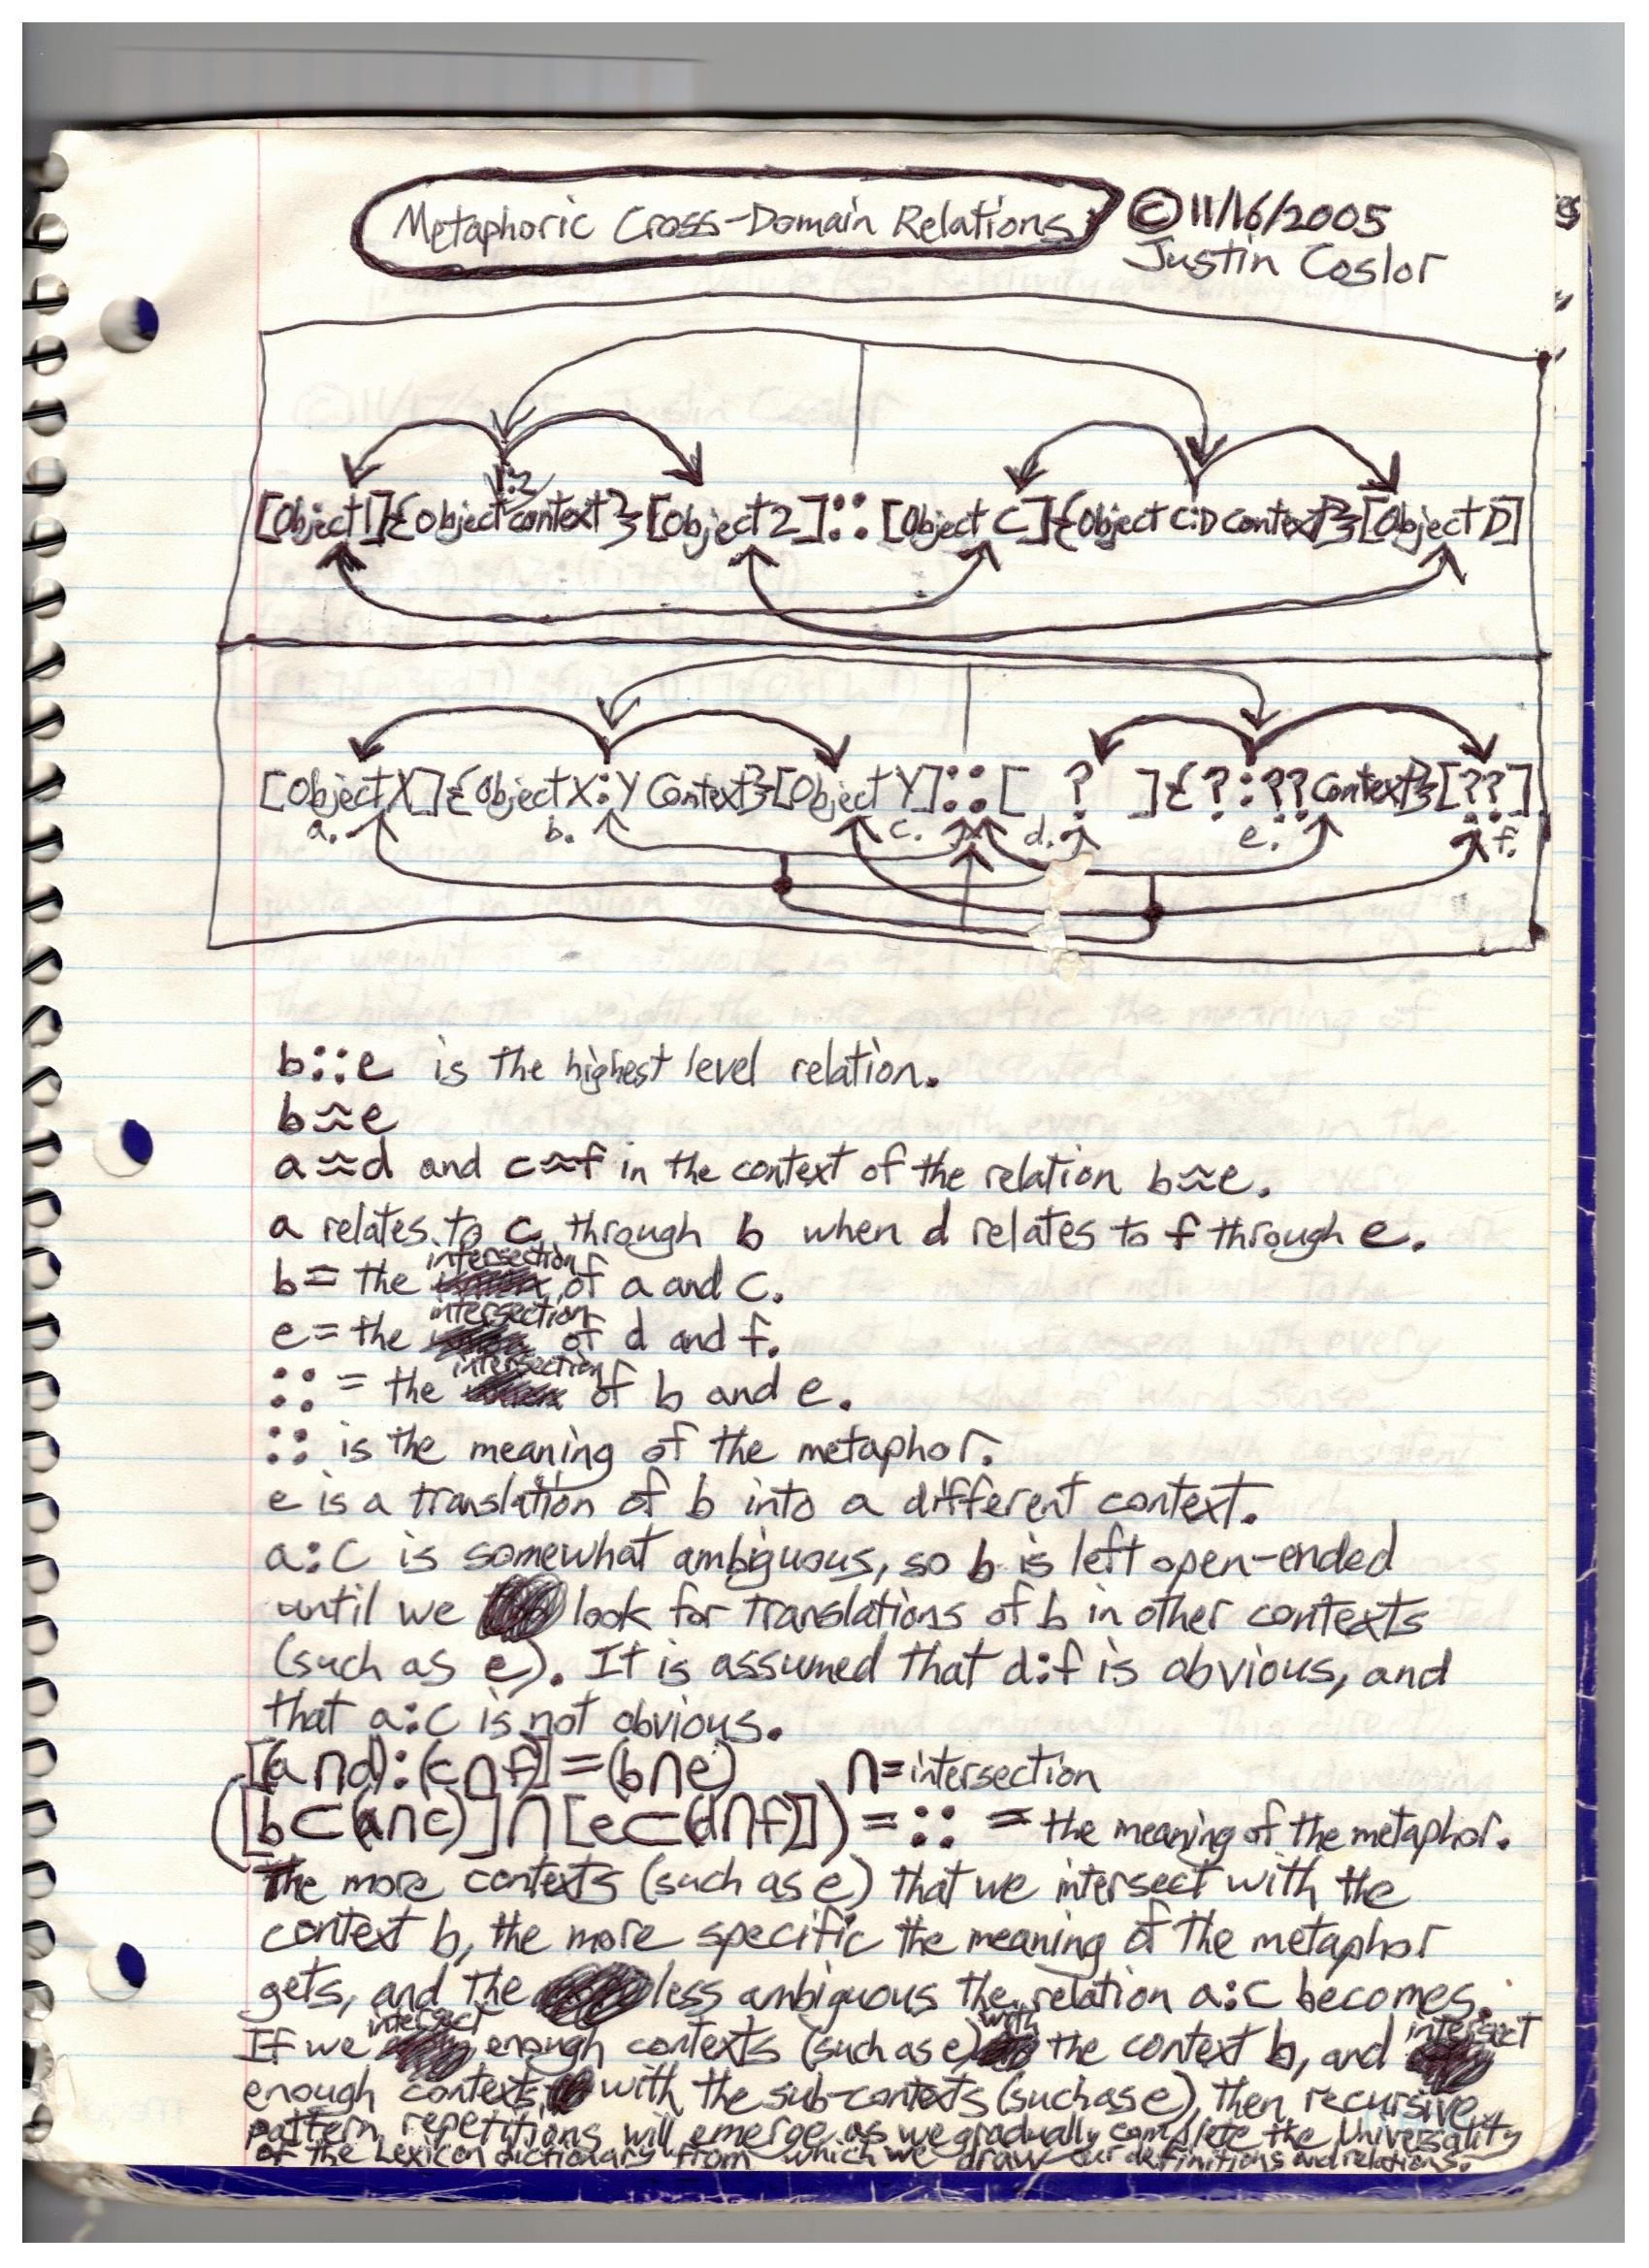 Metaphoric Cross-Domain Relations ©11/16/2005
Justin Coslor
1:2
[Object 1]{Object context}[Object 2]::[Object C]{Object C:D Context}[Object D]
[Object X]{Object X:Y Context}[Object Y]::[ ? ]{?:?? Context}[??]
a. b. c. d. e. f.
b::e is the highest level relation.
b≈e
a≈d and c≈f in the context of the relation b≈e.
a relates to c through b when d relates to f through e.
b= the intersection of a and c.
e= the intersection of d and f.
:: = the intersection of b and e.
:: is the meaning of the metaphor.
e is a translation of b into a different context.
a:c is somewhat ambiguous, so b is left open-ended
until we look for translations of b in other contexts
(such as e). It is assumed that d:f is obvious, and
that a:c is not obvious.
[(a∩d):(c∩f)]=(b∩e) ∩=intersection
([b⊂(a∩c)]∩[e⊂(d∩f)])=::= the meaning of the metaphor.
The more contexts (such as e) that we intersect with the
context b, the more specific the meaning of the metaphor
gets, and the less ambiguous the relation a:c becomes.
If we intersect enough contexts (such as e) with the context b, and intersect
enough contexts with the sub-contexts (such as e), then recursive
pattern repetitions will emerge as we gradually complete the Universality
of the Lexicon dictionary from which we draw our definitions and relations.